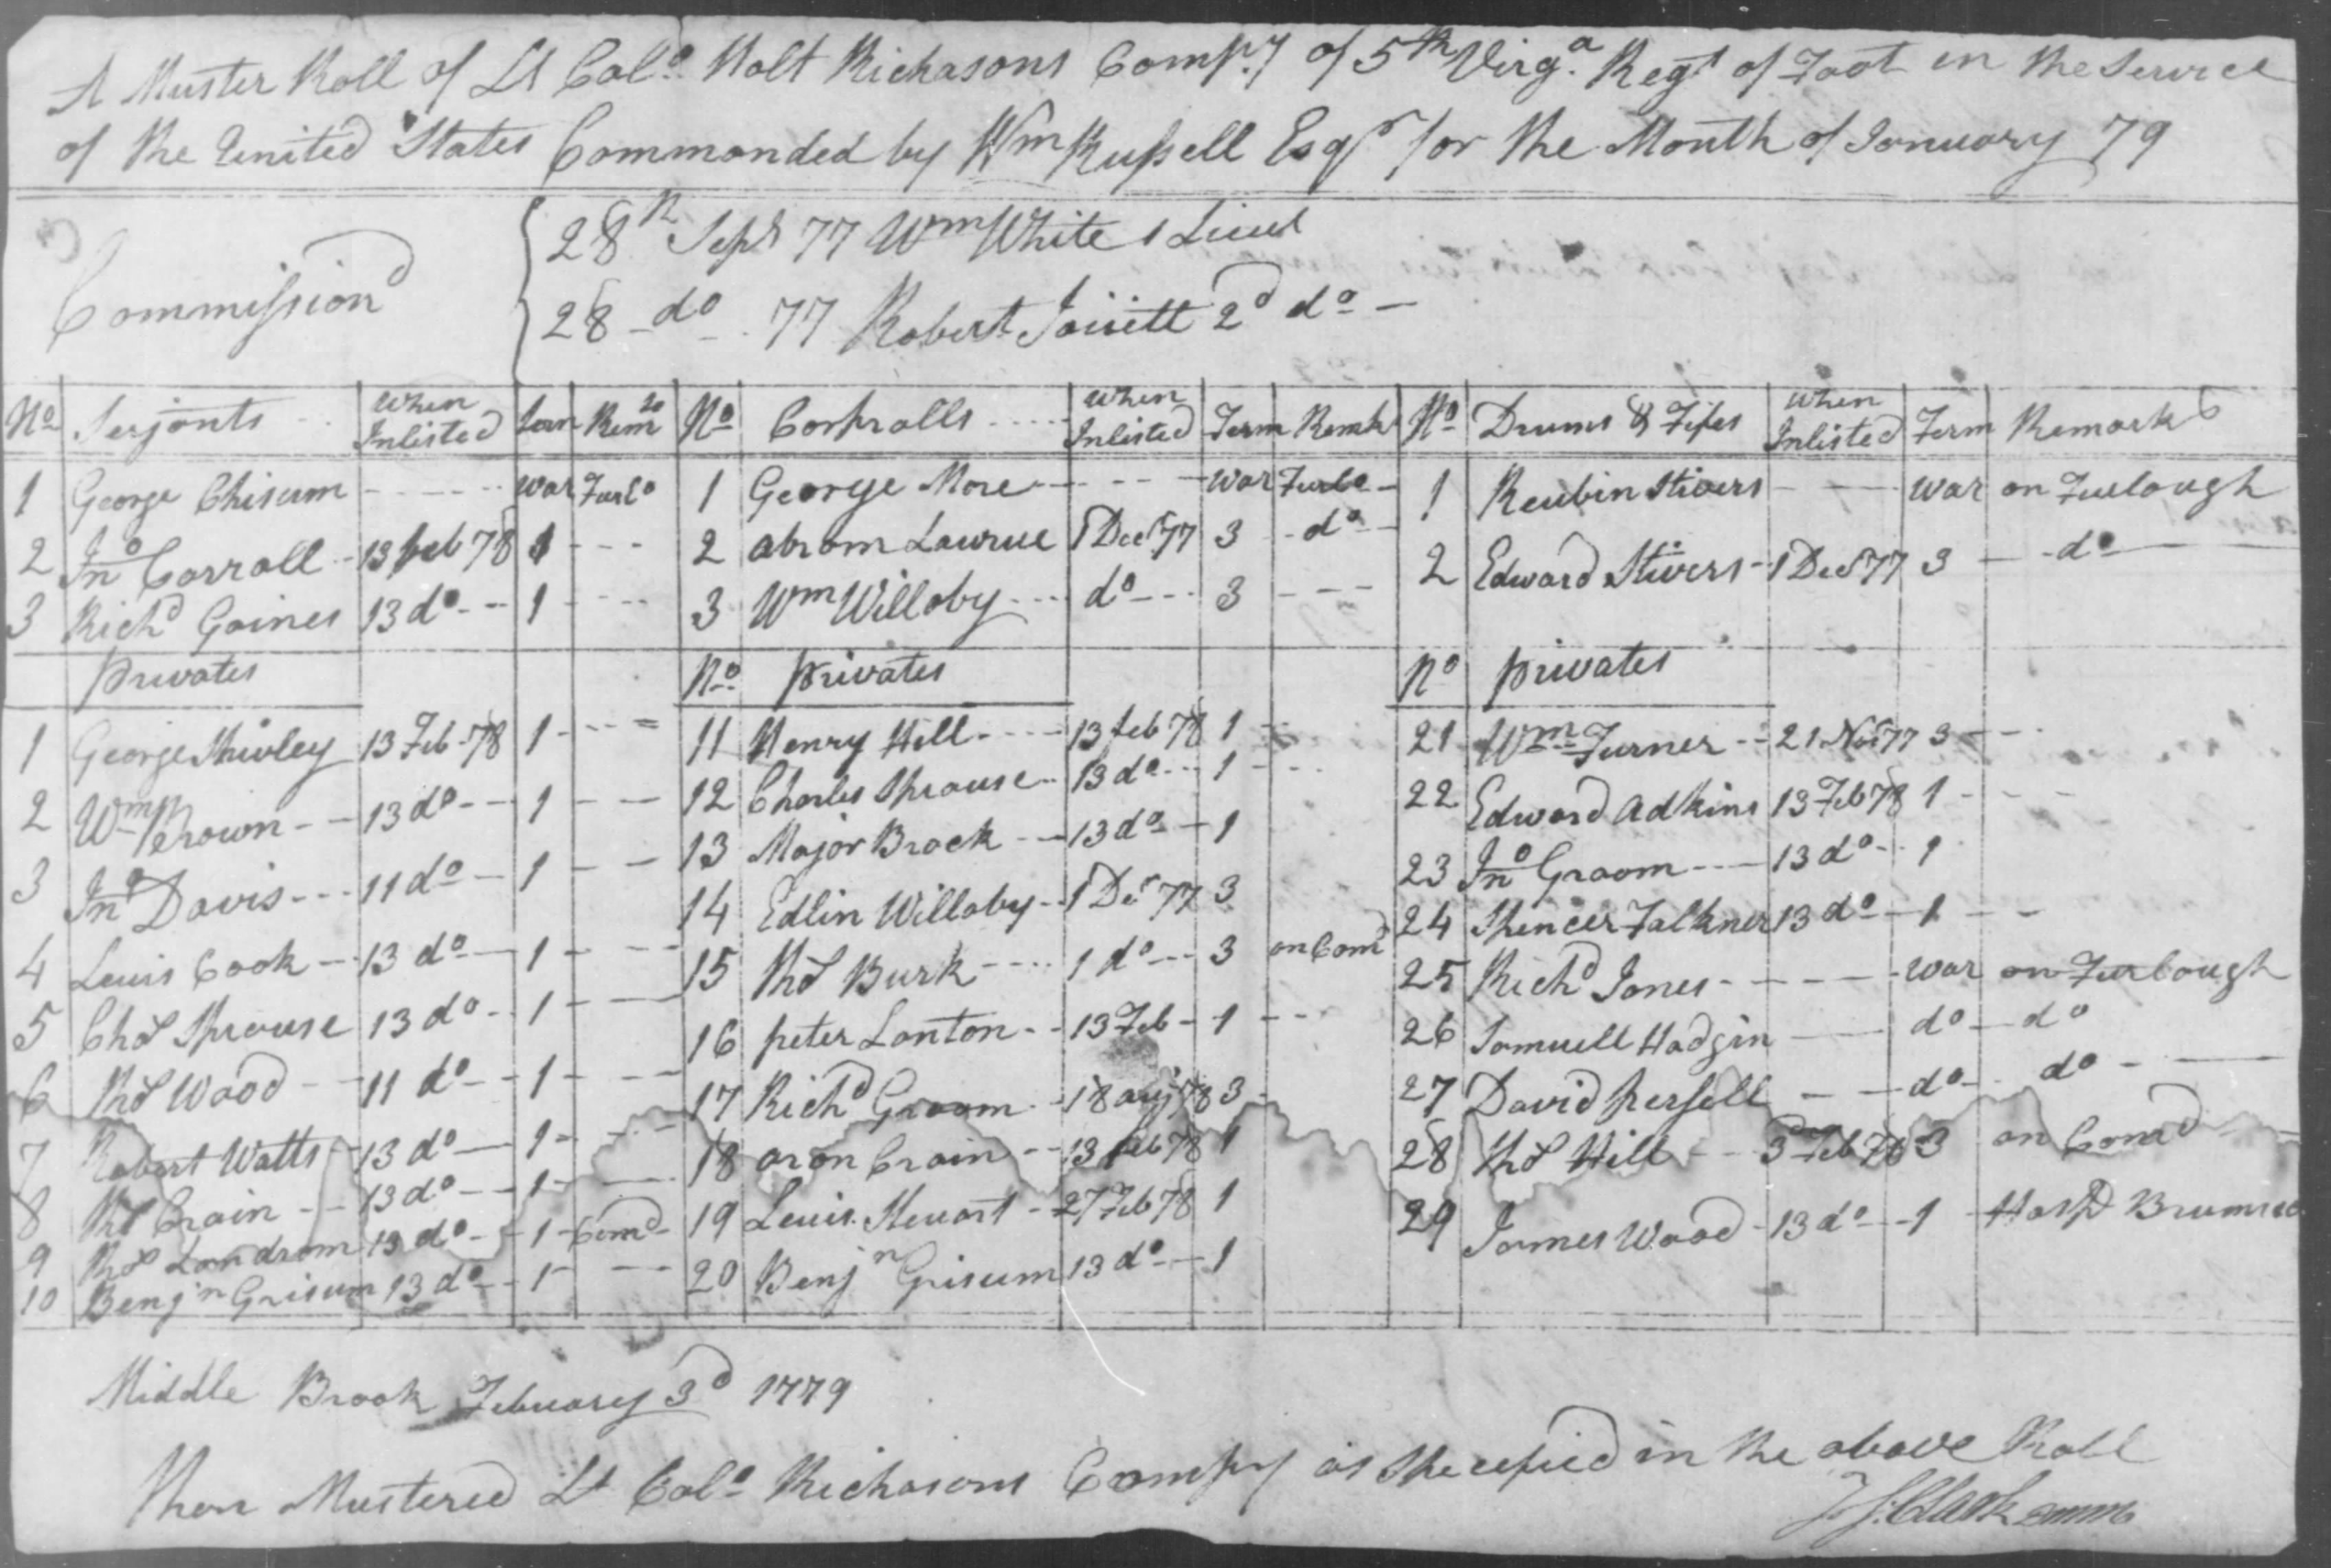 A Muster Roll of Lt Colo. Holt Richasons Compy of 5th Virga. Regt of Foot in the Service
of the United States Commanded by Wm Russell Esqr for the Month of January 79
Commissiond
28th Sept 77 Wm White 1 Lieut
28 do 77 Robert Jouett 2d do
No Serjants When Inlisted Term Remks
1 George Chisum war Furlo
2 Jno Carroll 13 feb 78 1
3 Richd Gaines 13 do 1
No Corpralls When Inlisted Term Remks
1 George More war Furlo
2 abram Laurue 1 Decr 77 3 do
3 Wm Willoby do 3
No Drums & Fifes When Inlisted Term Remarks
1 Reubin Stivers war on Furlough
2 Edward Stivers 1 Decr 77 3 do
Privates
1 George Shivley 13 Feb 78 1
2 Wm Brown 13 do 1
3 Jno Davis 11 do 1
4 Lewis Cook 13 do 1
5 Chos Sprouse 13 do 1
6 Thos Wood 11 do 1
7 Robert Watts 13 do 1
8 Thos Crain 13 do 1
9 Thos Landrom 13 do 1 Comd
10 Benjn Grisum 13 do 1
No privates
11 Henry Hill 13 feb 78 1
12 Charles Sprouse 13 do 1
13 Major Brock 13 do 1
14 Edlin Willoby 1 Decr 77 3
15 Thos Burk 1 do 3 on Comd
16 peter Lanton 13 Feb 1
17 Richd Groom 18 augt 78 3
18 aron Crain 13 feb 78 1
19 Lewis Stewart 27 Feb 78 1
20 Benjn Grisum 13 do 1
No privates
21 Wm Turner 21 Novr 77 3
22 Edward Adkins 13 Feb 78 1
23 Jno Groom 13 do 1
24 Spencer Falkner 13 do 1
25 Richd Jones war on Furlough
26 Samuell Hodgin do do
27 David persell do do
28 Thos Hill 3 Feb 78 3 on Comd
29 James Wood 13 do 1 Hospl
Middle Brook Febuary 3d 1779
Then Mustered Lt Colo Richasons Compy as Specefied in the above Roll
Clark